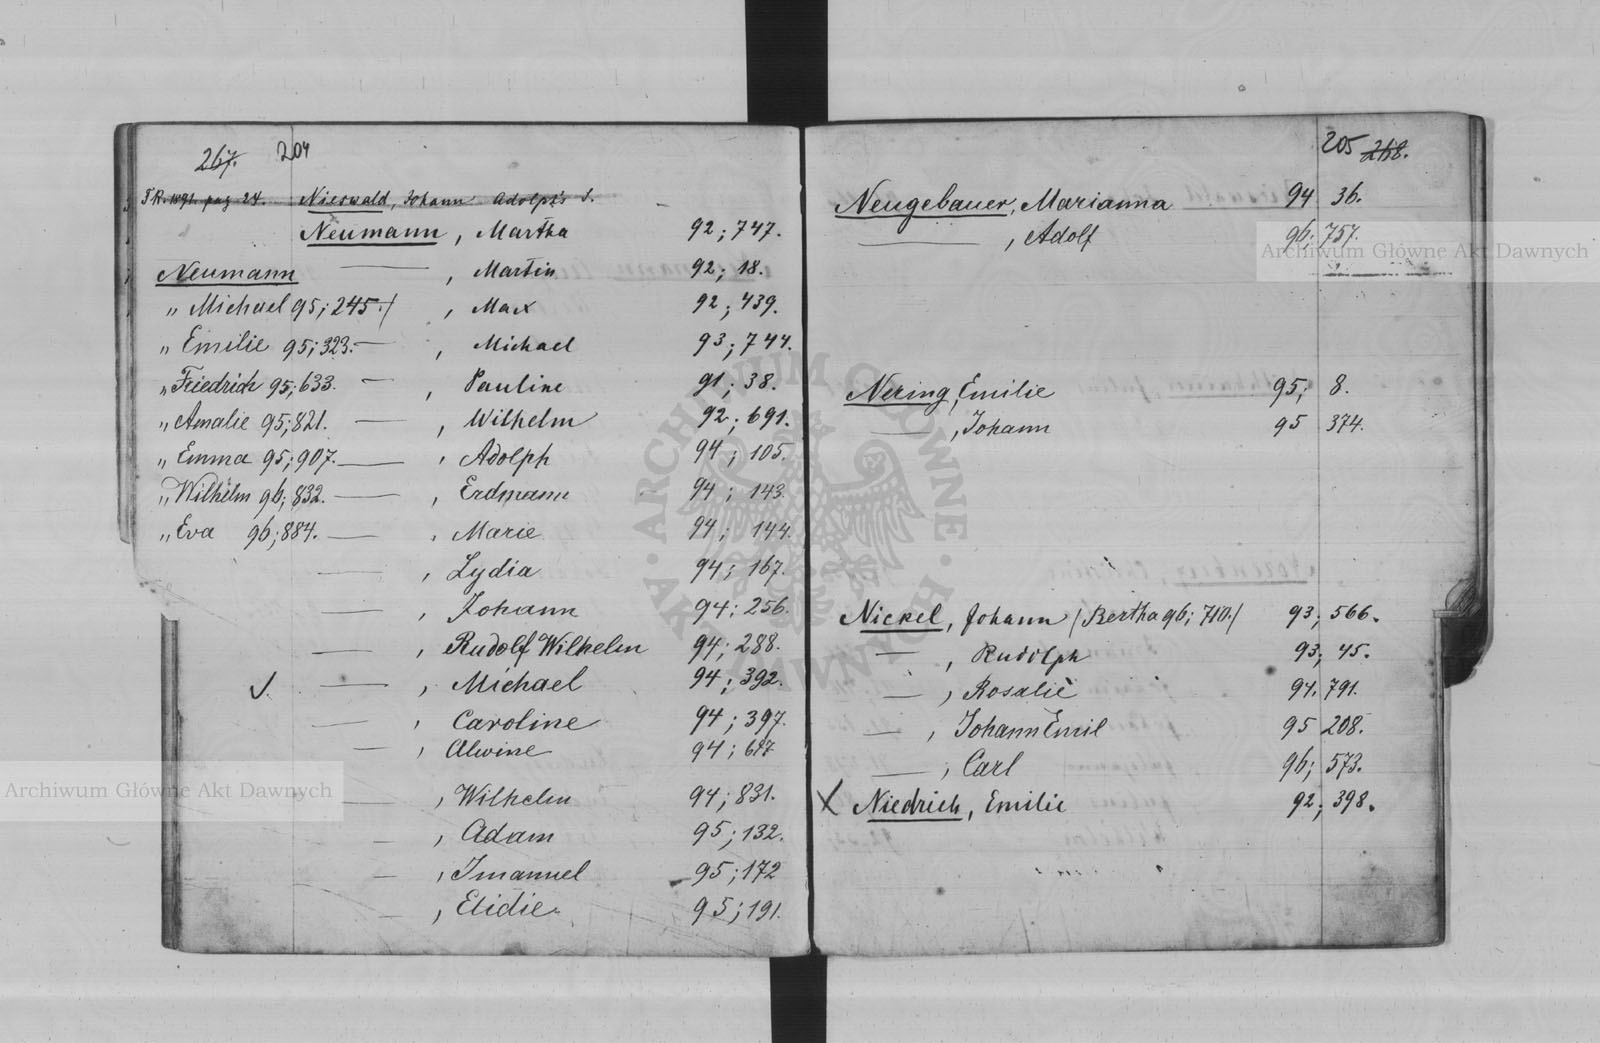 267. 204
T.R. 1891. pag 24. Nieswald, Johann Adolph's S.
Neumann, Martha 92; 747.
Neumann — , Martin 92; 18.
„ Michael 95; 245. / , Max 92; 439.
„ Emilie 95; 323. — , Michael 93; 744.
„ Friedrich 95; 633. — , Pauline 91; 38.
„ Amalie 95; 821. — , Wilhelm 92; 691.
„ Emma 95; 907. — , Adolph 94; 105.
„ Wilhelm 96; 832. — , Erdmann 94; 143.
„ Eva 96; 884. — , Marie 94; 144.
— , Lydia 94; 167.
— , Johann 94; 256.
— , Rudolf Wilhelm 94; 288.
— , Michael 94; 392.
— , Caroline 94; 397.
— , Alwine 94;
— , Wilhelm 94; 831.
— , Adam 95; 132.
— , Imanuel 95; 172
— , Elidie 95; 191.
205 268.
Neugebauer, Marianna 94 36.
— , Adolf 96; 757.
Nering, Emilie 95; 8.
— , Johann 95 374.
Nickel, Johann / Bertha 96; 710. / 93; 566.
— , Rudolph 93; 45.
— , Rosalie 94. 791.
— , Johann Emil 95 208.
— , Carl 96; 573.
X Niedrich, Emilie 92; 398.
Archiwum Główne Akt Dawnych
Archiwum Główne Akt Dawnych
ARCHIWUM GŁÓWNE AKT DAWNYCH